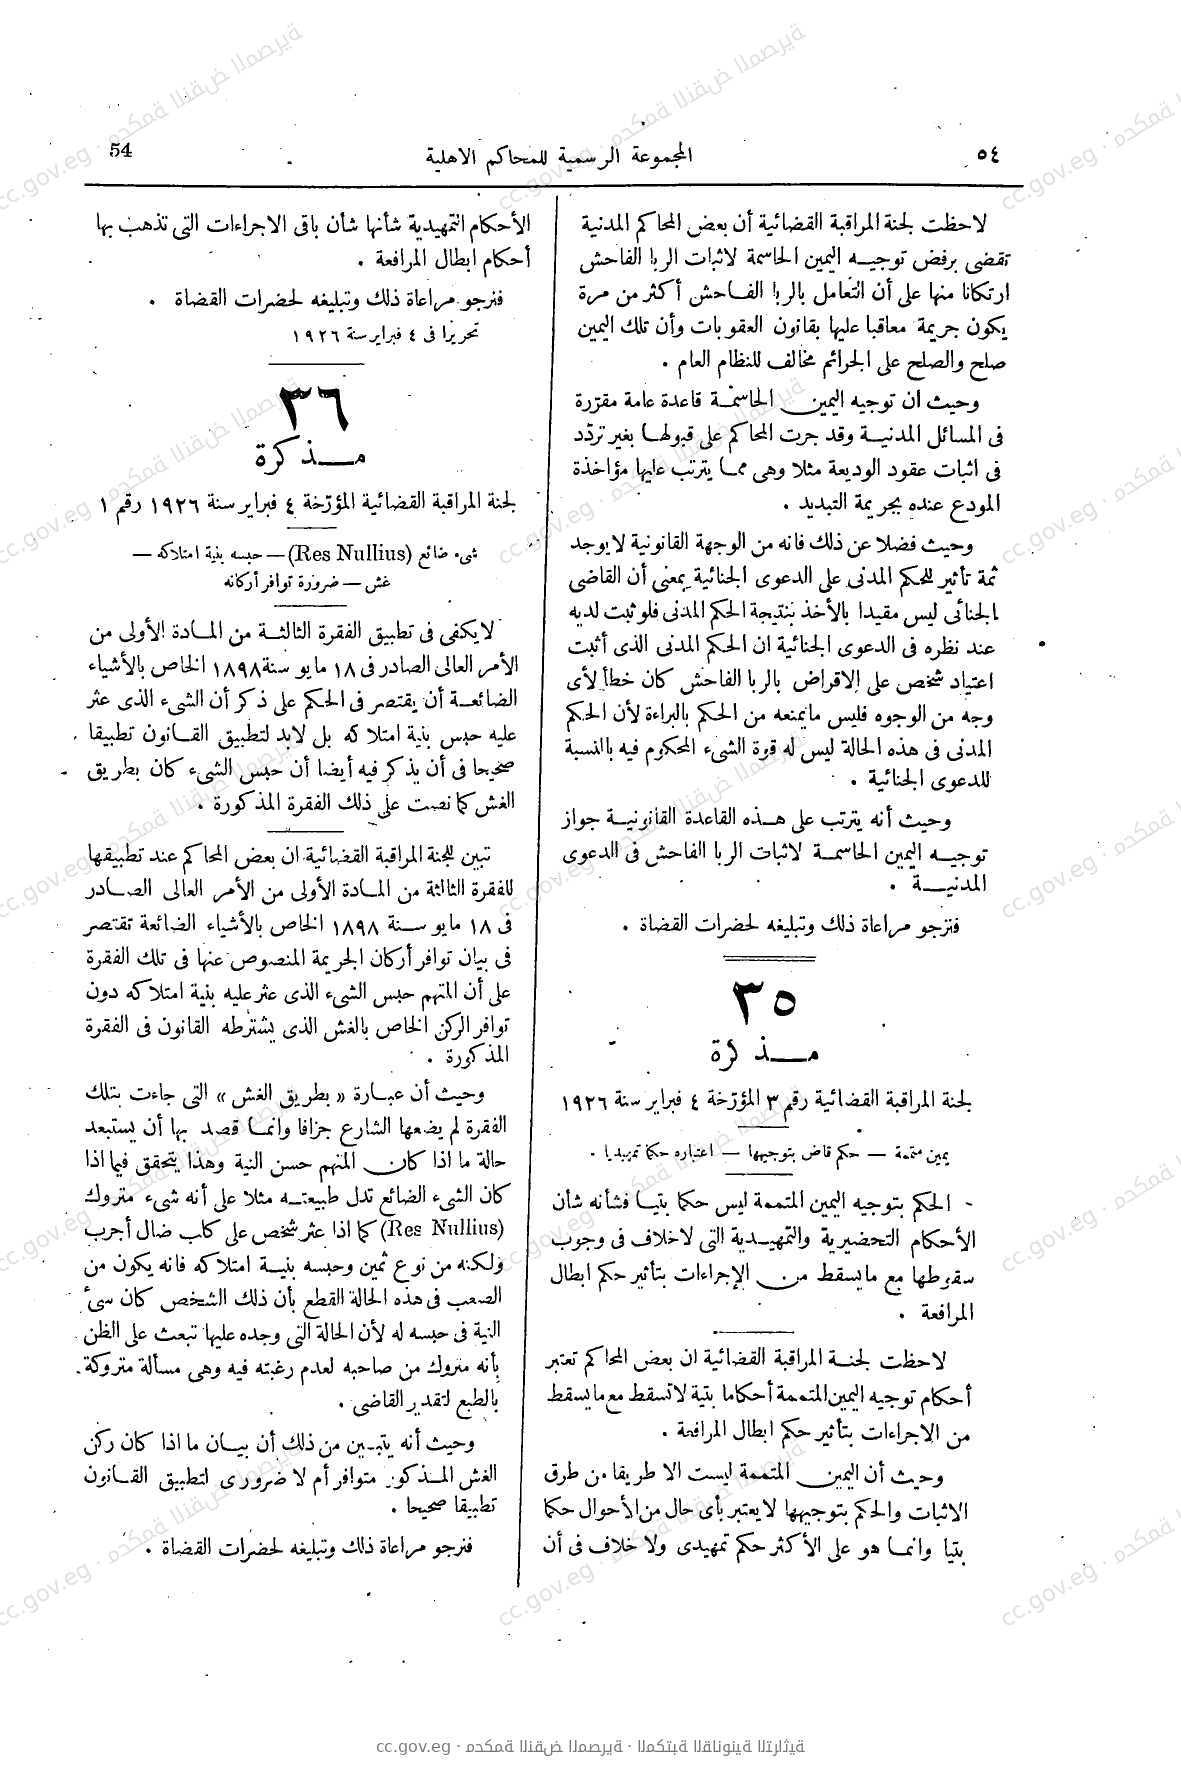 ٥٤
المجموعة الرسمية للمحاكم الاهلية
54
لاحظت لجنة المراقبة القضائية أن بعض المحاكم المدنية
تقضى برفض توجيه اليمين الحاسمة لاثبات الربا الفاحش
ارتكانا منها على أن التعامل بالربا الفاحش أكثر من مرة
يكون جريمة معاقبا عليها بقانون العقوبات وأن تلك اليمين
صلح والصلح على الجرائم مخالف للنظام العام .
وحيث ان توجيه اليمين الحاسمة قاعدة عامة مقررة
فى المسائل المدنية وقد جرت المحاكم على قبولها بغير تردّد
فى اثبات عقود الوديعة مثلا وهى مما يترتب عليها مؤاخذة
المودع عنده بجريمة التبديد .
وحيث فضلا عن ذلك فانه من الوجهة القانونية لا يوجد
ثمة تأثير للحكم المدنى على الدعوى الجنائية بمعنى أن القاضى
الجنائى ليس مقيدا بالأخذ بنتيجة الحكم المدنى فلو ثبت لديه
عند نظره فى الدعوى الجنائية ان الحكم المدنى الذى أثبت
اعتياد شخص على الاقراض بالربا الفاحش كان خطأ لأى
وجه من الوجوه فليس ما يمنعه من الحكم بالبراءة لأن الحكم
المدنى فى هذه الحالة ليس له قوة الشىء المحكوم فيه بالنسبة
للدعوى الجنائية .
وحيث أنه يترتب على هذه القاعدة القانونية جواز
توجيه اليمين الحاسمة لاثبات الربا الفاحش فى الدعوى
المدنية .
فنرجو مراعاة ذلك وتبليغه لحضرات القضاة .
٣٥
مذكرة
لجنة المراقبة القضائية رقم ٣ المؤرّخة ٤ فبراير سنة ١٩٢٦
يمين متممة — حكم قاض بتوجيهها — اعتباره حكما تمهيديا .
- الحكم بتوجيه اليمين المتممة ليس حكما بتيا فشأنه شأن
الأحكام التحضيرية والتمهيدية التى لاخلاف فى وجوب
سقوطها مع مايسقط من الإجراءات بتأثير حكم ابطال
المرافعة .
لاحظت لجنة المراقبة القضائية ان بعض المحاكم تعتبر
أحكام توجيه اليمين المتممة أحكاما بتية لاتسقط مع مايسقط
من الاجراءات بتأثير حكم ابطال المرافعة .
وحيث أن اليمين المتممة ليست الا طريقا من طرق
الاثبات والحكم بتوجيهها لايعتبر بأى حال من الأحوال حكما
بتيا وانما هو على الأكثر حكم تمهيدى ولا خلاف فى أن
الأحكام التمهيدية شأنها شأن باقى الاجراءات التى تذهب بها
أحكام ابطال المرافعة .
فنرجو مراعاة ذلك وتبليغه لحضرات القضاة .
تحريرا فى ٤ فبراير سنة ١٩٢٦
٣٦
مذكرة
لجنة المراقبة القضائية المؤرّخة ٤ فبراير سنة ١٩٢٦ رقم ١
شىء ضائع (Res Nullius) — حبسه بنية امتلاكه —
غش — ضرورة توافر أركانه
لا يكفى فى تطبيق الفقرة الثالثة من المادة الأولى من
الأمر العالى الصادر فى ١٨ مايو سنة ١٨٩٨ الخاص بالأشياء
الضائعة أن يقتصر فى الحكم على ذكر أن الشىء الذى عثر
عليه حبس بنية امتلاكه بل لابد لتطبيق القانون تطبيقا
صحيحا فى أن يذكر فيه أيضا أن حبس الشىء كان بطريق
الغش كما نصت على ذلك الفقرة المذكورة .
تبين للجنة المراقبة القضائية ان بعض المحاكم عند تطبيقها
للفقرة الثالثة من المادة الأولى من الأمر العالى الصادر
فى ١٨ مايو سنة ١٨٩٨ الخاص بالأشياء الضائعة تقتصر
فى بيان توافر أركان الجريمة المنصوص عنها فى تلك الفقرة
على أن المتهم حبس الشىء الذى عثر عليه بنية امتلاكه دون
توافر الركن الخاص بالغش الذى يشترطه القانون فى الفقرة
المذكورة .
وحيث أن عبارة « بطريق الغش » التى جاءت بتلك
الفقرة لم يضعها الشارع جزافا وانما قصد بها أن يستبعد
حالة ما اذا كان المتهم حسن النية وهذا يتحقق فيما اذا
كان الشىء الضائع تدل طبيعته مثلا على أنه شىء متروك
(Res Nullius) كما اذا عثر شخص على كلب ضال أجرب
ولكنه من نوع ثمين وحبسه بنية امتلاكه فانه يكون من
الصعب فى هذه الحالة القطع بأن ذلك الشخص كان سىء
النية فى حبسه له لأن الحالة التى وجده عليها تبعث على الظن
بأنه متروك من صاحبه لعدم رغبته فيه وهى مسألة متروكة
بالطبع لتقدير القاضى .
وحيث أنه يتبين من ذلك أن بيان ما اذا كان ركن
الغش المذكور متوافر أم لا ضرورى لتطبيق القانون
تطبيقا صحيحا .
فنرجو مراعاة ذلك وتبليغه لحضرات القضاة .
cc.gov.eg · محكمة النقض المصرية · المكتبة القانونية التراثية